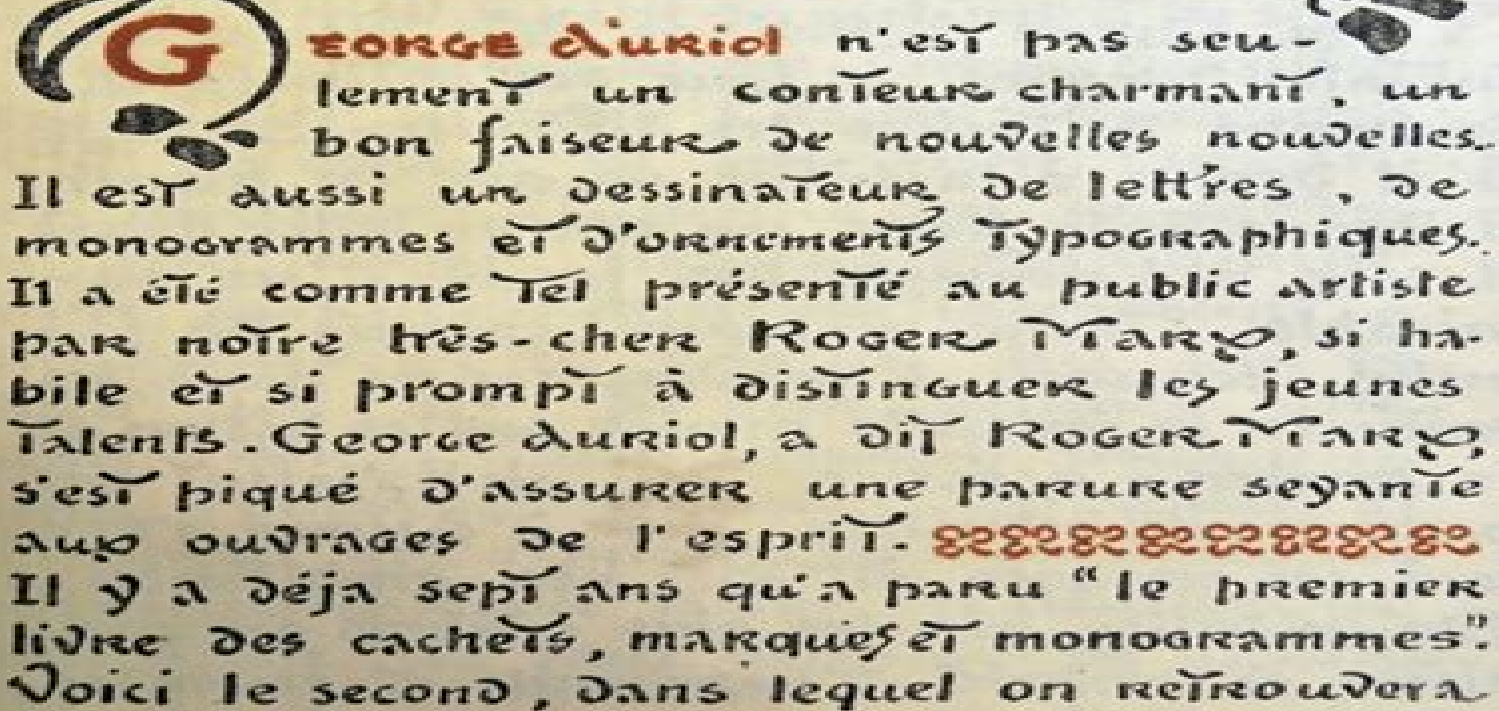 GEORGE AURIOL n'est pas seu-
lement un conteur charmant, un
bon faiseur de nouvelles nouvelles.
Il est aussi un dessinateur de lettres, de
monogrammes et d'ornements typographiques.
Il a été comme tel présenté au public artiste
par notre très-cher Roger Marx, si ha-
bile et si prompt à distinguer les jeunes
talents. George Auriol, a dit Roger Marx,
s'est piqué d'assurer une parure seyante
aux ouvrages de l'esprit.
Il y a déja sept ans qu'a paru “le premier
livre des cachets, marques et monogrammes”.
Voici le second, dans lequel on retrouvera